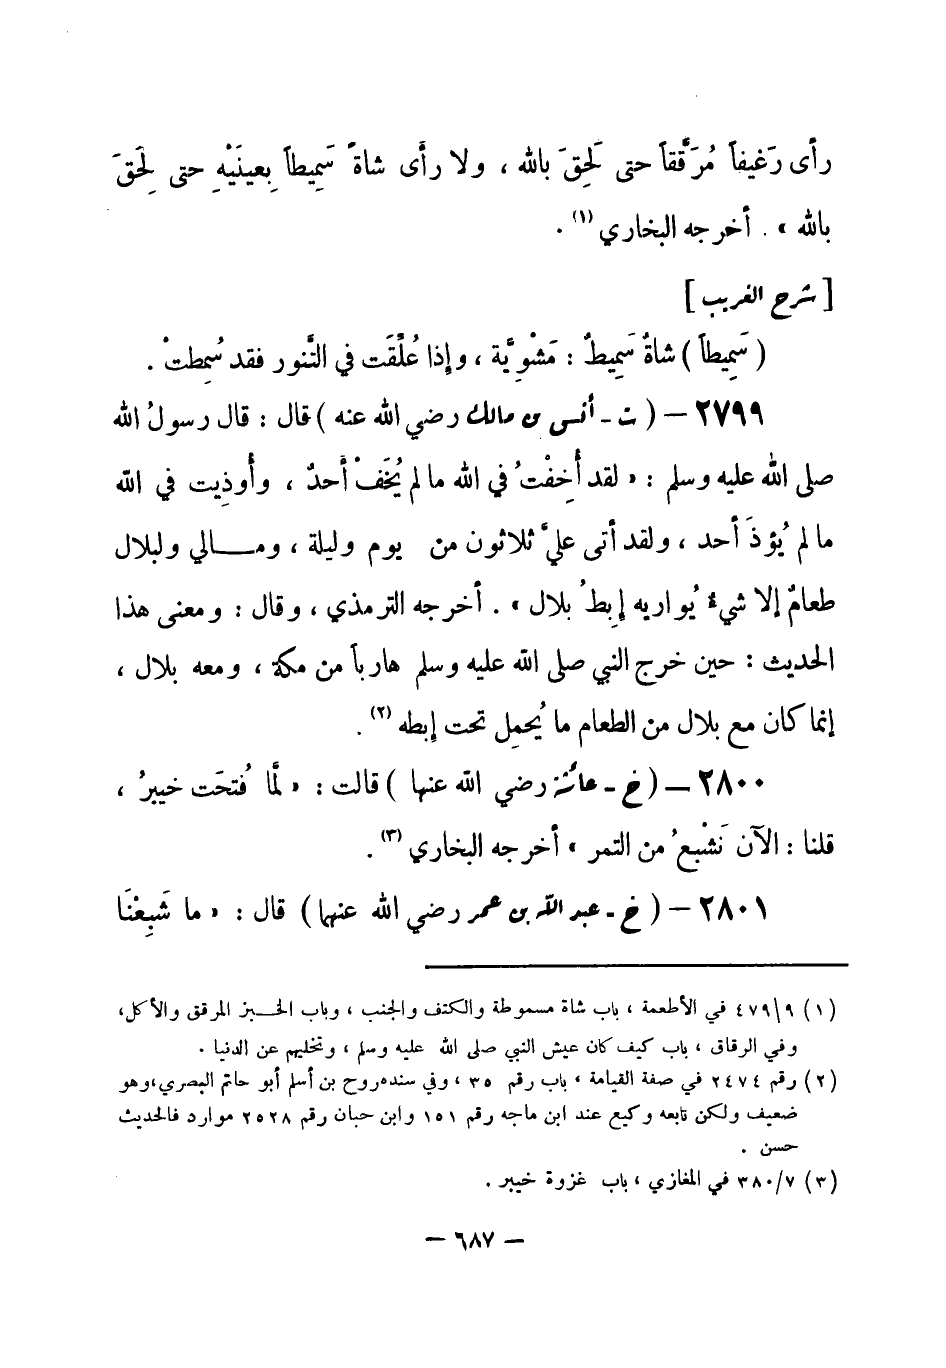 رأى رَغيفاً مُرَقَّقاً حتى لَحِقَ بالله ، ولا رأَى شاةً سَمِيطاً بِعينَيْهِ حتى لَحِقَ
بالله » . أخرجه البخاري (١) .
[ شرح الغريب ]
( سَمِيطاً ) شاةٌ سَمِيطٌ : مَشْوِيَّة ، وإذا عُلِّقَت في التَّنور فقد سُمِطتْ .
٢٧٩٩ – ( ت - أنس بن مالك رضي الله عنه ) قال : قال رسولُ الله
صلى الله عليه وسلم : « لقد أُخِفْتُ في الله ما لم يُخَفْ أَحدٌ ، وأُوذِيت في الله
ما لم يُؤذَ أحد ، ولقد أتى عليَّ ثلاثون من يوم وليلة ، ومـــالي ولبلال
طعامٌ إلا شيءٌ يُواريه إبطُ بلال » . أخرجه الترمذي ، وقال : ومعنى هذا
الحديث : حين خرج النبي صلى الله عليه وسلم هارباً من مكة ، ومعه بلال ،
إنما كان مع بلال من الطعام ما يُحمِل تحت إبطه (٢) .
٢٨٠٠ – ( خ - عائشة رضي الله عنها ) قالت : « لمَّا فُتحَت خيبرُ ،
قلنا : الآن نَشْبعُ من التمر » أخرجه البخاري (٣) .
٢٨٠١ – ( خ - عبد الله بن عمر رضي الله عنهما ) قال : « ما شَبِعْنَا
(١) ٤٧٩/٩ في الأطعمة ، باب شاة مسموطة والكتف والجنب ، وباب الخـــبز المرقق والأكل،
وفي الرقاق ، باب كيف كان عيش النبي صلى الله عليه وسلم ، وتخليهم عن الدنيا .
(٢) رقم ٢٤٧٤ في صفة القيامة ، باب رقم ٣٥ ، وفي سنده روح بن أسلم أبو حاتم البصري ، وهو
ضعيف ولكن تابعه وكيع عند ابن ماجه رقم ١٥١ وابن حبان رقم ٢٥٢٨ موارد فالحديث
حسن .
(٣) ٣٨٠/٧ في المغازي ، باب غزوة خيبر .
– ٦٨٧ –